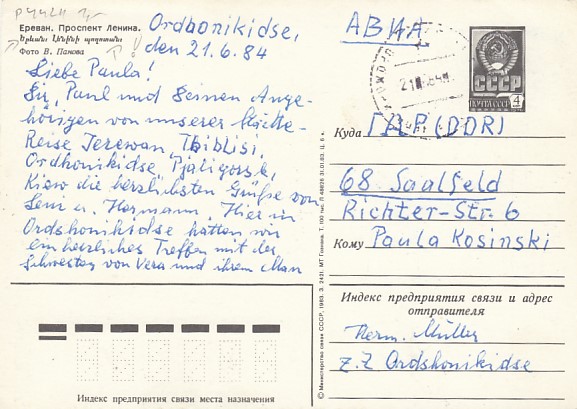 Ереван. Проспект Ленина.
Երևան: Լենինի պողոտան
Фото В. Панова
Ordhonikidse,
den 21.6.84
Liebe Paula!
Dir, Paul und Deinen Ange-
hörigen von unserer Städte-
Reise Jerewan, Tbiblisi,
Ordhonikidse, Pjatigorsk,
Kiew die herzlichsten Grüße von
Leni u. Hermann. Hier in
Ordshonikidse hatten wir
ein herzliches Treffen mit der
Schwester von Vera und ihrem Man
АВИА
СССР
ПОЧТА СССР 4
Куда ГДР (DDR)
68 Saalfeld
Richter-Str. 6
Кому Paula Kosinski
Индекс предприятия связи и адрес
отправителя
Herm. Müller
z.Z Ordshonikidse
Индекс предприятия связи места назначения
© Министерство связи СССР, 1983.